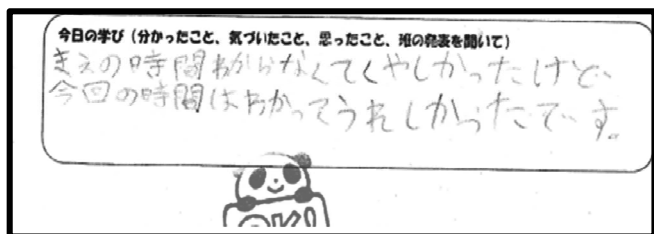 今日の学び（分かったこと、気づいたこと、思ったこと、班の発表を聞いて）
まえの時間わからなくてくやしかったけど、
今回の時間はわかってうれしかったです。
OK!